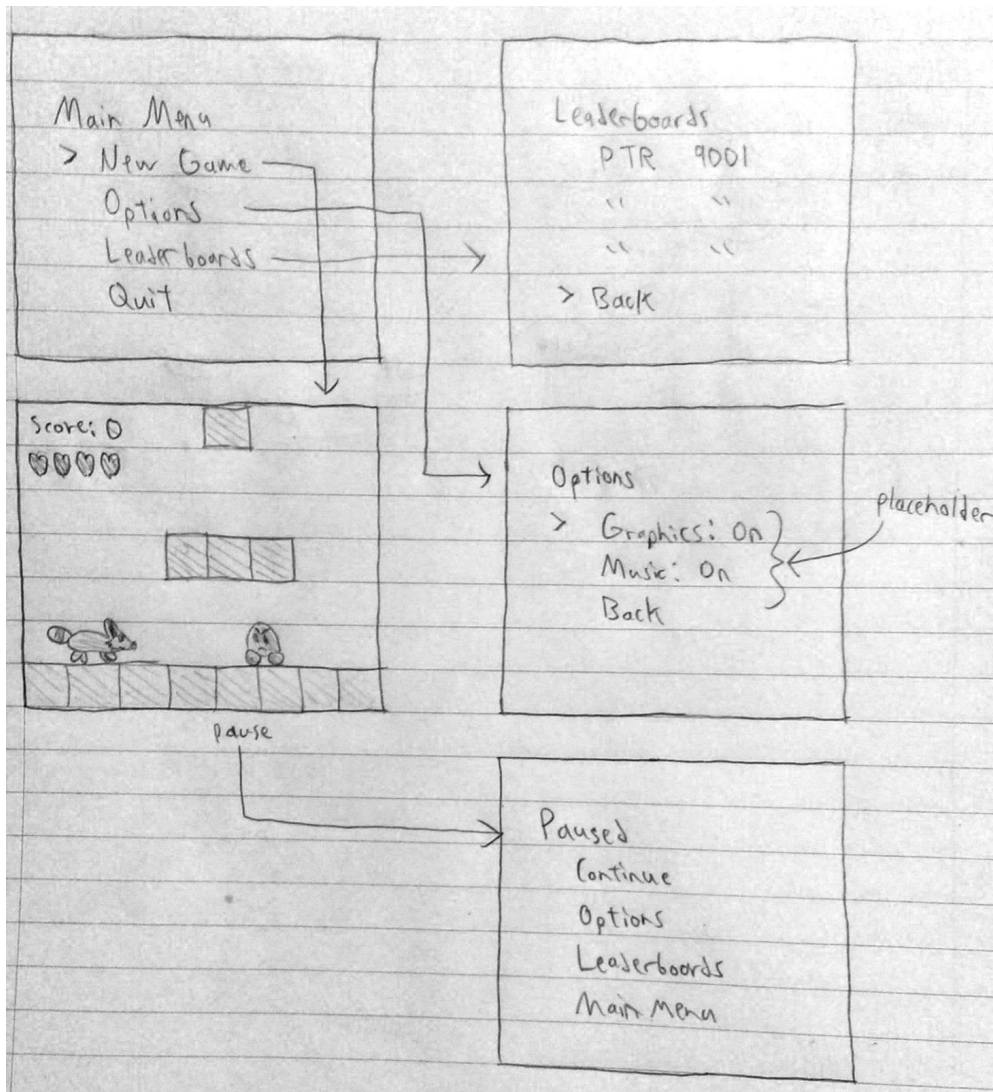 Main Menu
> New Game
Options
Leaderboards
Quit
Leaderboards
PTR 9001
" "
" "
> Back
Score: 0
Options
> Graphics: On
Music: On
Back
placeholder
pause
Paused
Continue
Options
Leaderboards
Main Menu